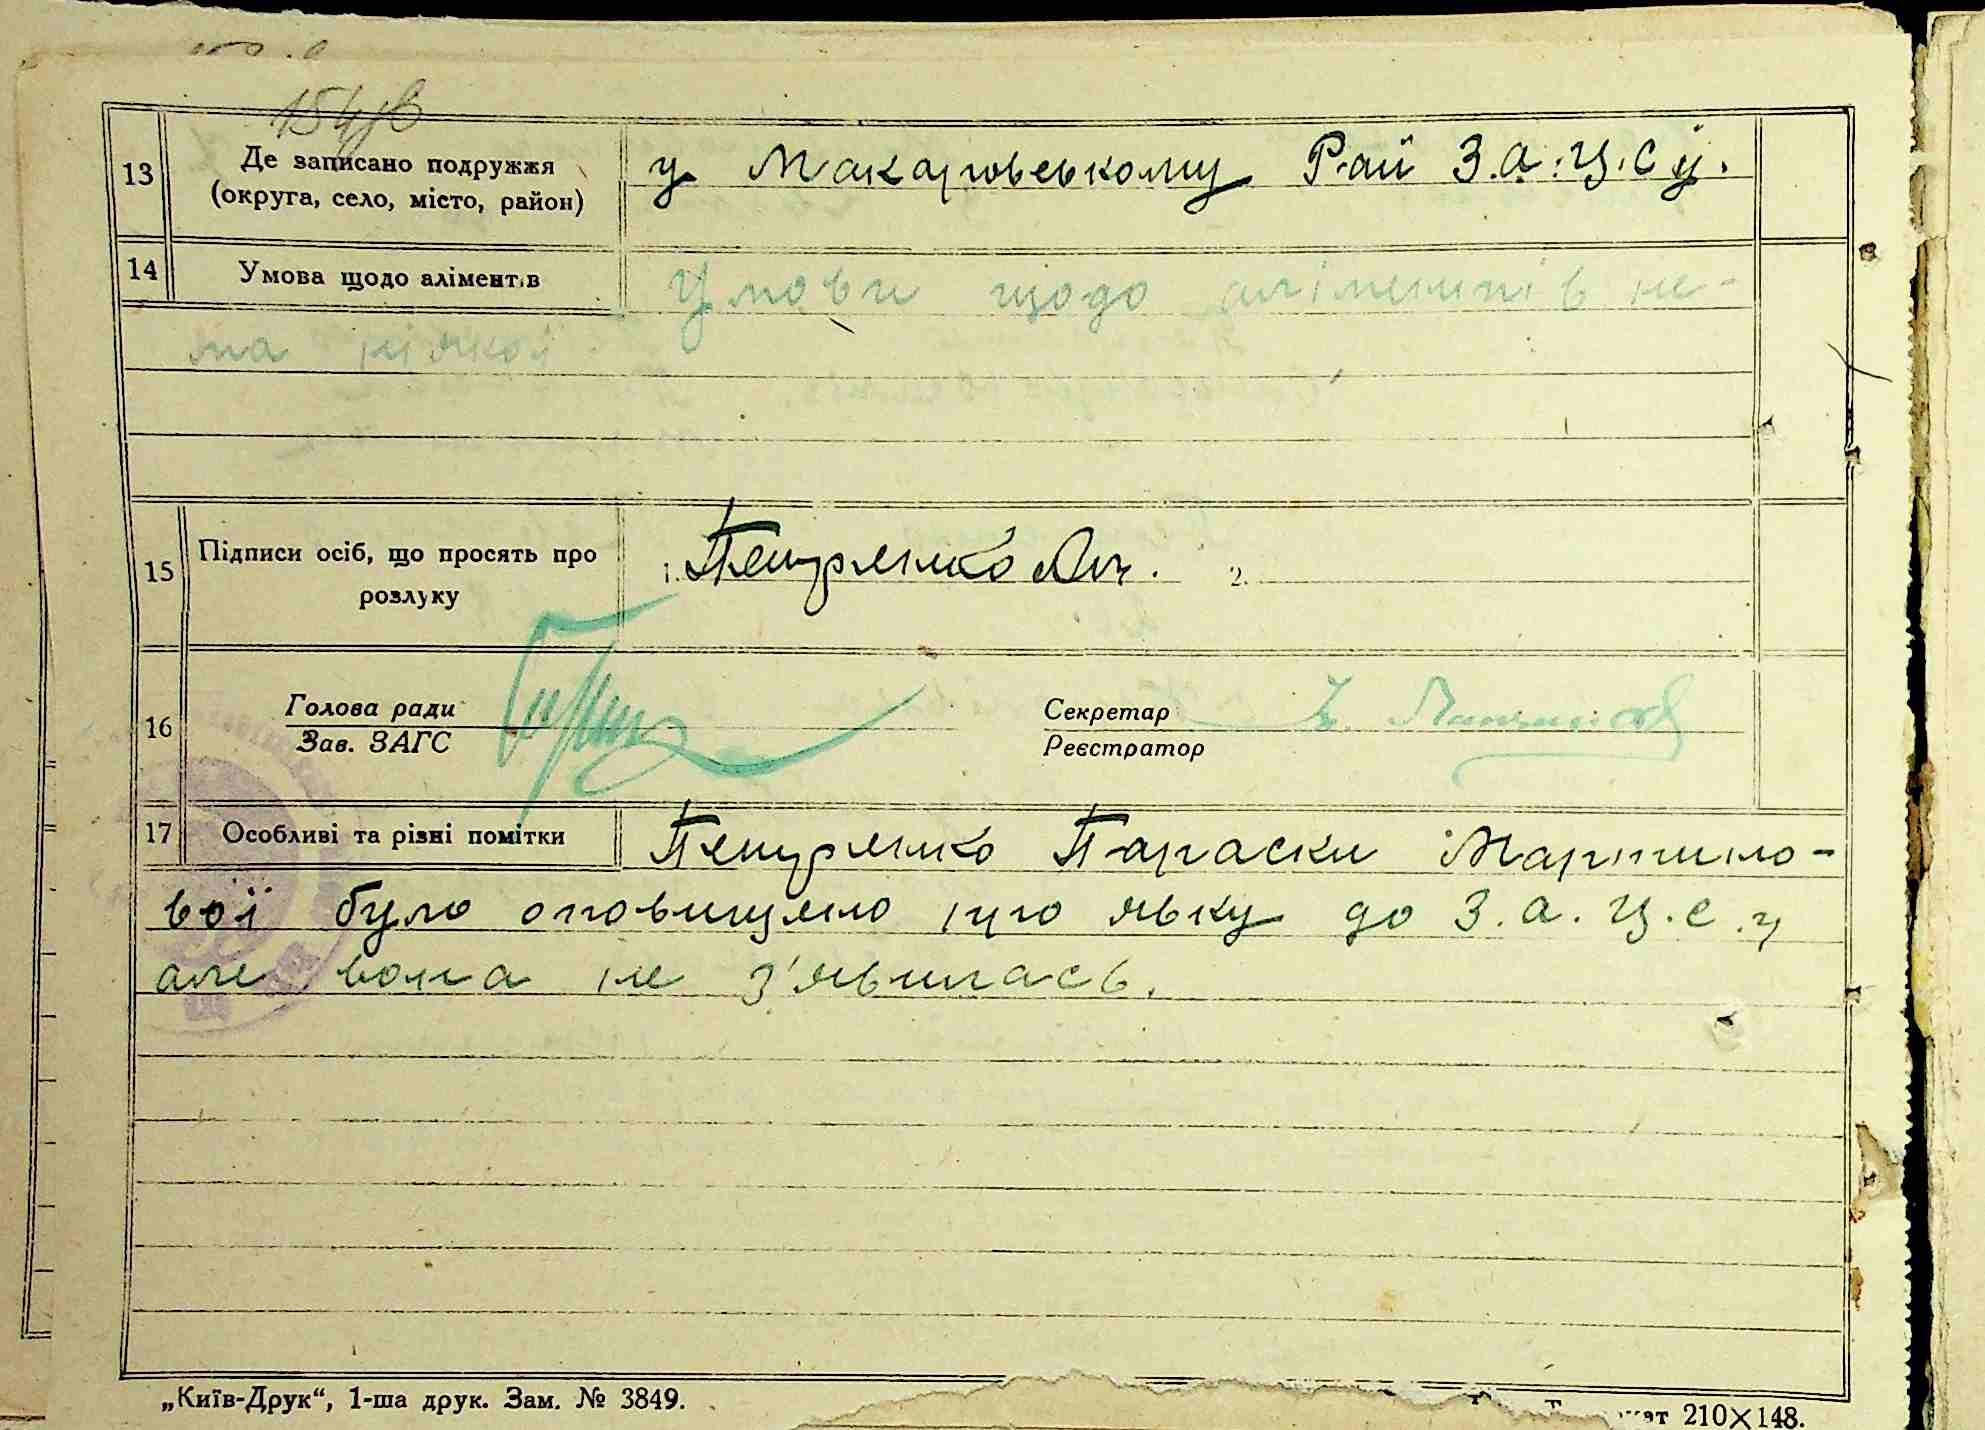 154зв
13
Де записано подружжя
(округа, село, місто, район)
у Макаровському Рай З.а.ц.с у.
14
Умова щодо аліментів
Умови щодо аліментів не-
ма ніякої
15
Підписи осіб, що просять про
розлуку
1. Петренко
2.
16
Голова ради
Зав. ЗАГС
Секретар
Реєстратор
17
Особливі та різні помітки
Петренко Параски Мартино-
вої було оповищено про явку до З.а.ц.с.у
але вона не з'явилась.
„Київ-Друк“, 1-ша друк. Зам. № 3849.
210×148.